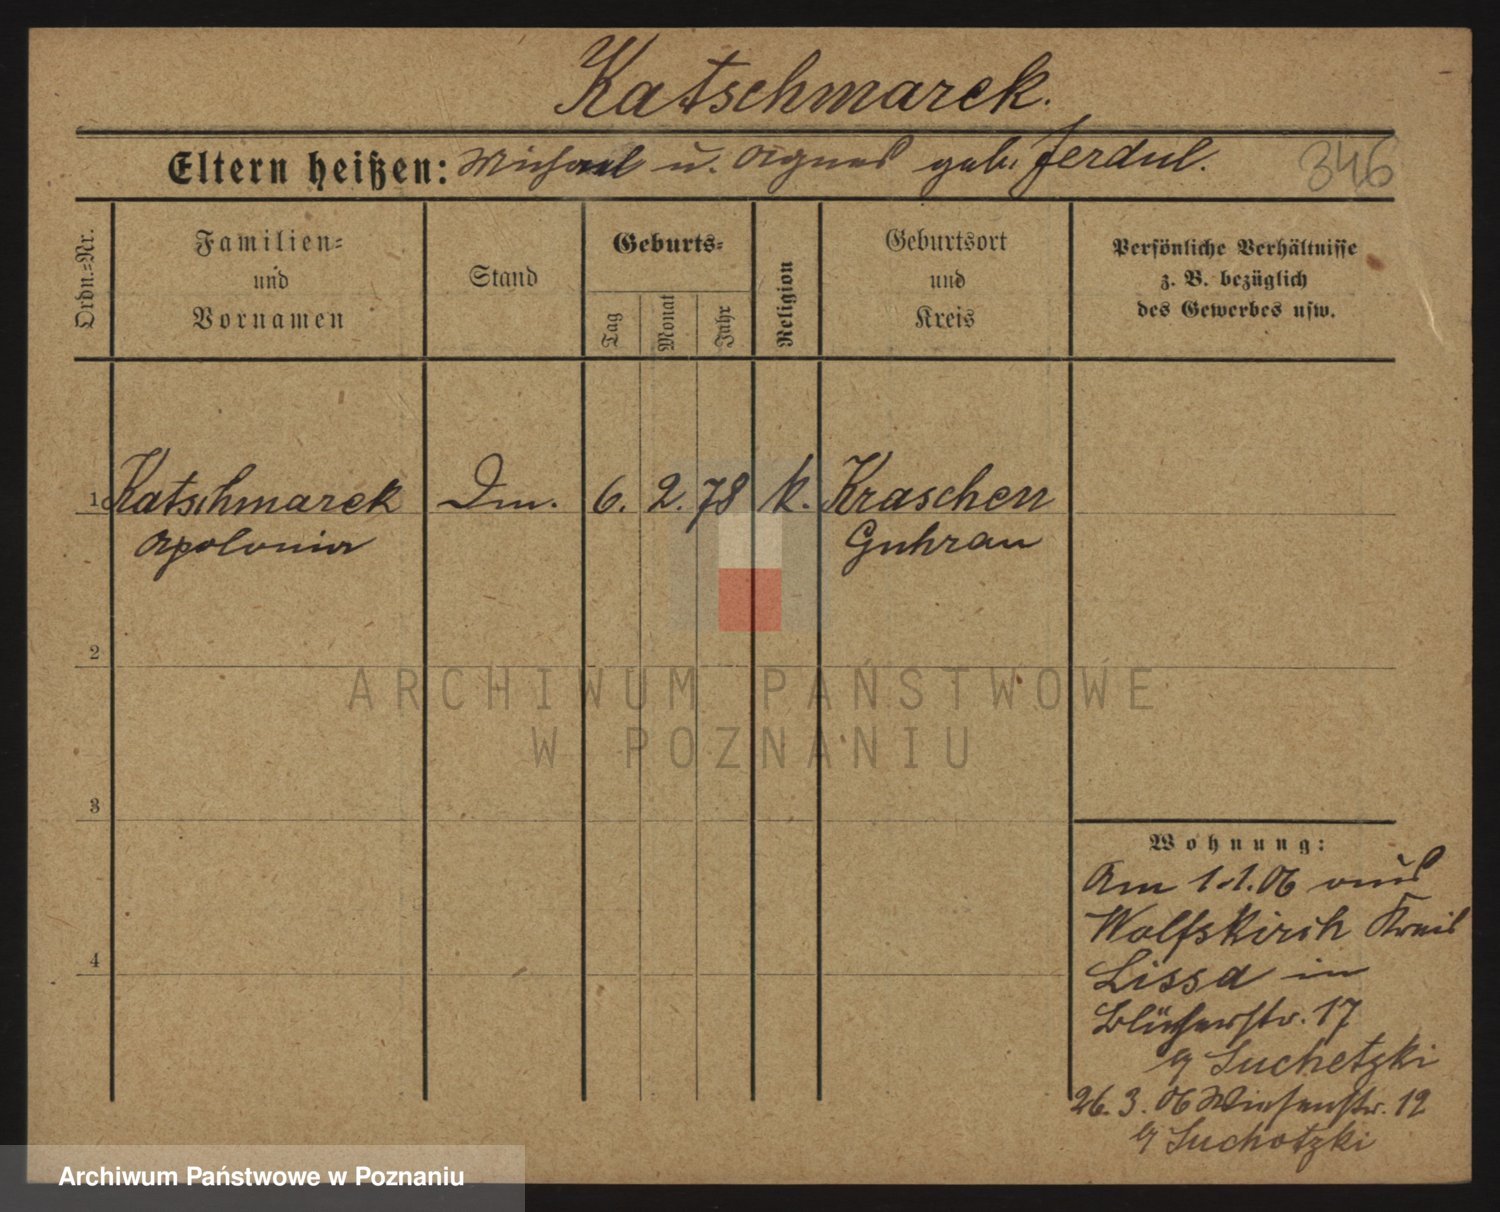 Katschmarek.
Eltern heißen: Michael u. Agnes geb. Jerdul.
346
Ordn.=Nr.
Familien=
und
Vornamen
Stand
Geburts=
Tag
Monat
Jahr
Religion
Geburtsort
und
Kreis
Persönliche Verhältnisse
z. B. bezüglich
des Gewerbes usw.
1 Katschmarek Dm. 6. 2. 78 k. Kraschen
Apolonia Guhrau
2
ARCHIWUM PAŃSTWOWE
W POZNANIU
3
Wohnung:
Am 1.1.06 aus
Wolfskirch Kreis
4
Lissa in
Blücherstr. 17
Suchetzki
26. 3. 06 Wiesenstr. 12
Suchotzki
Archiwum Państwowe w Poznaniu